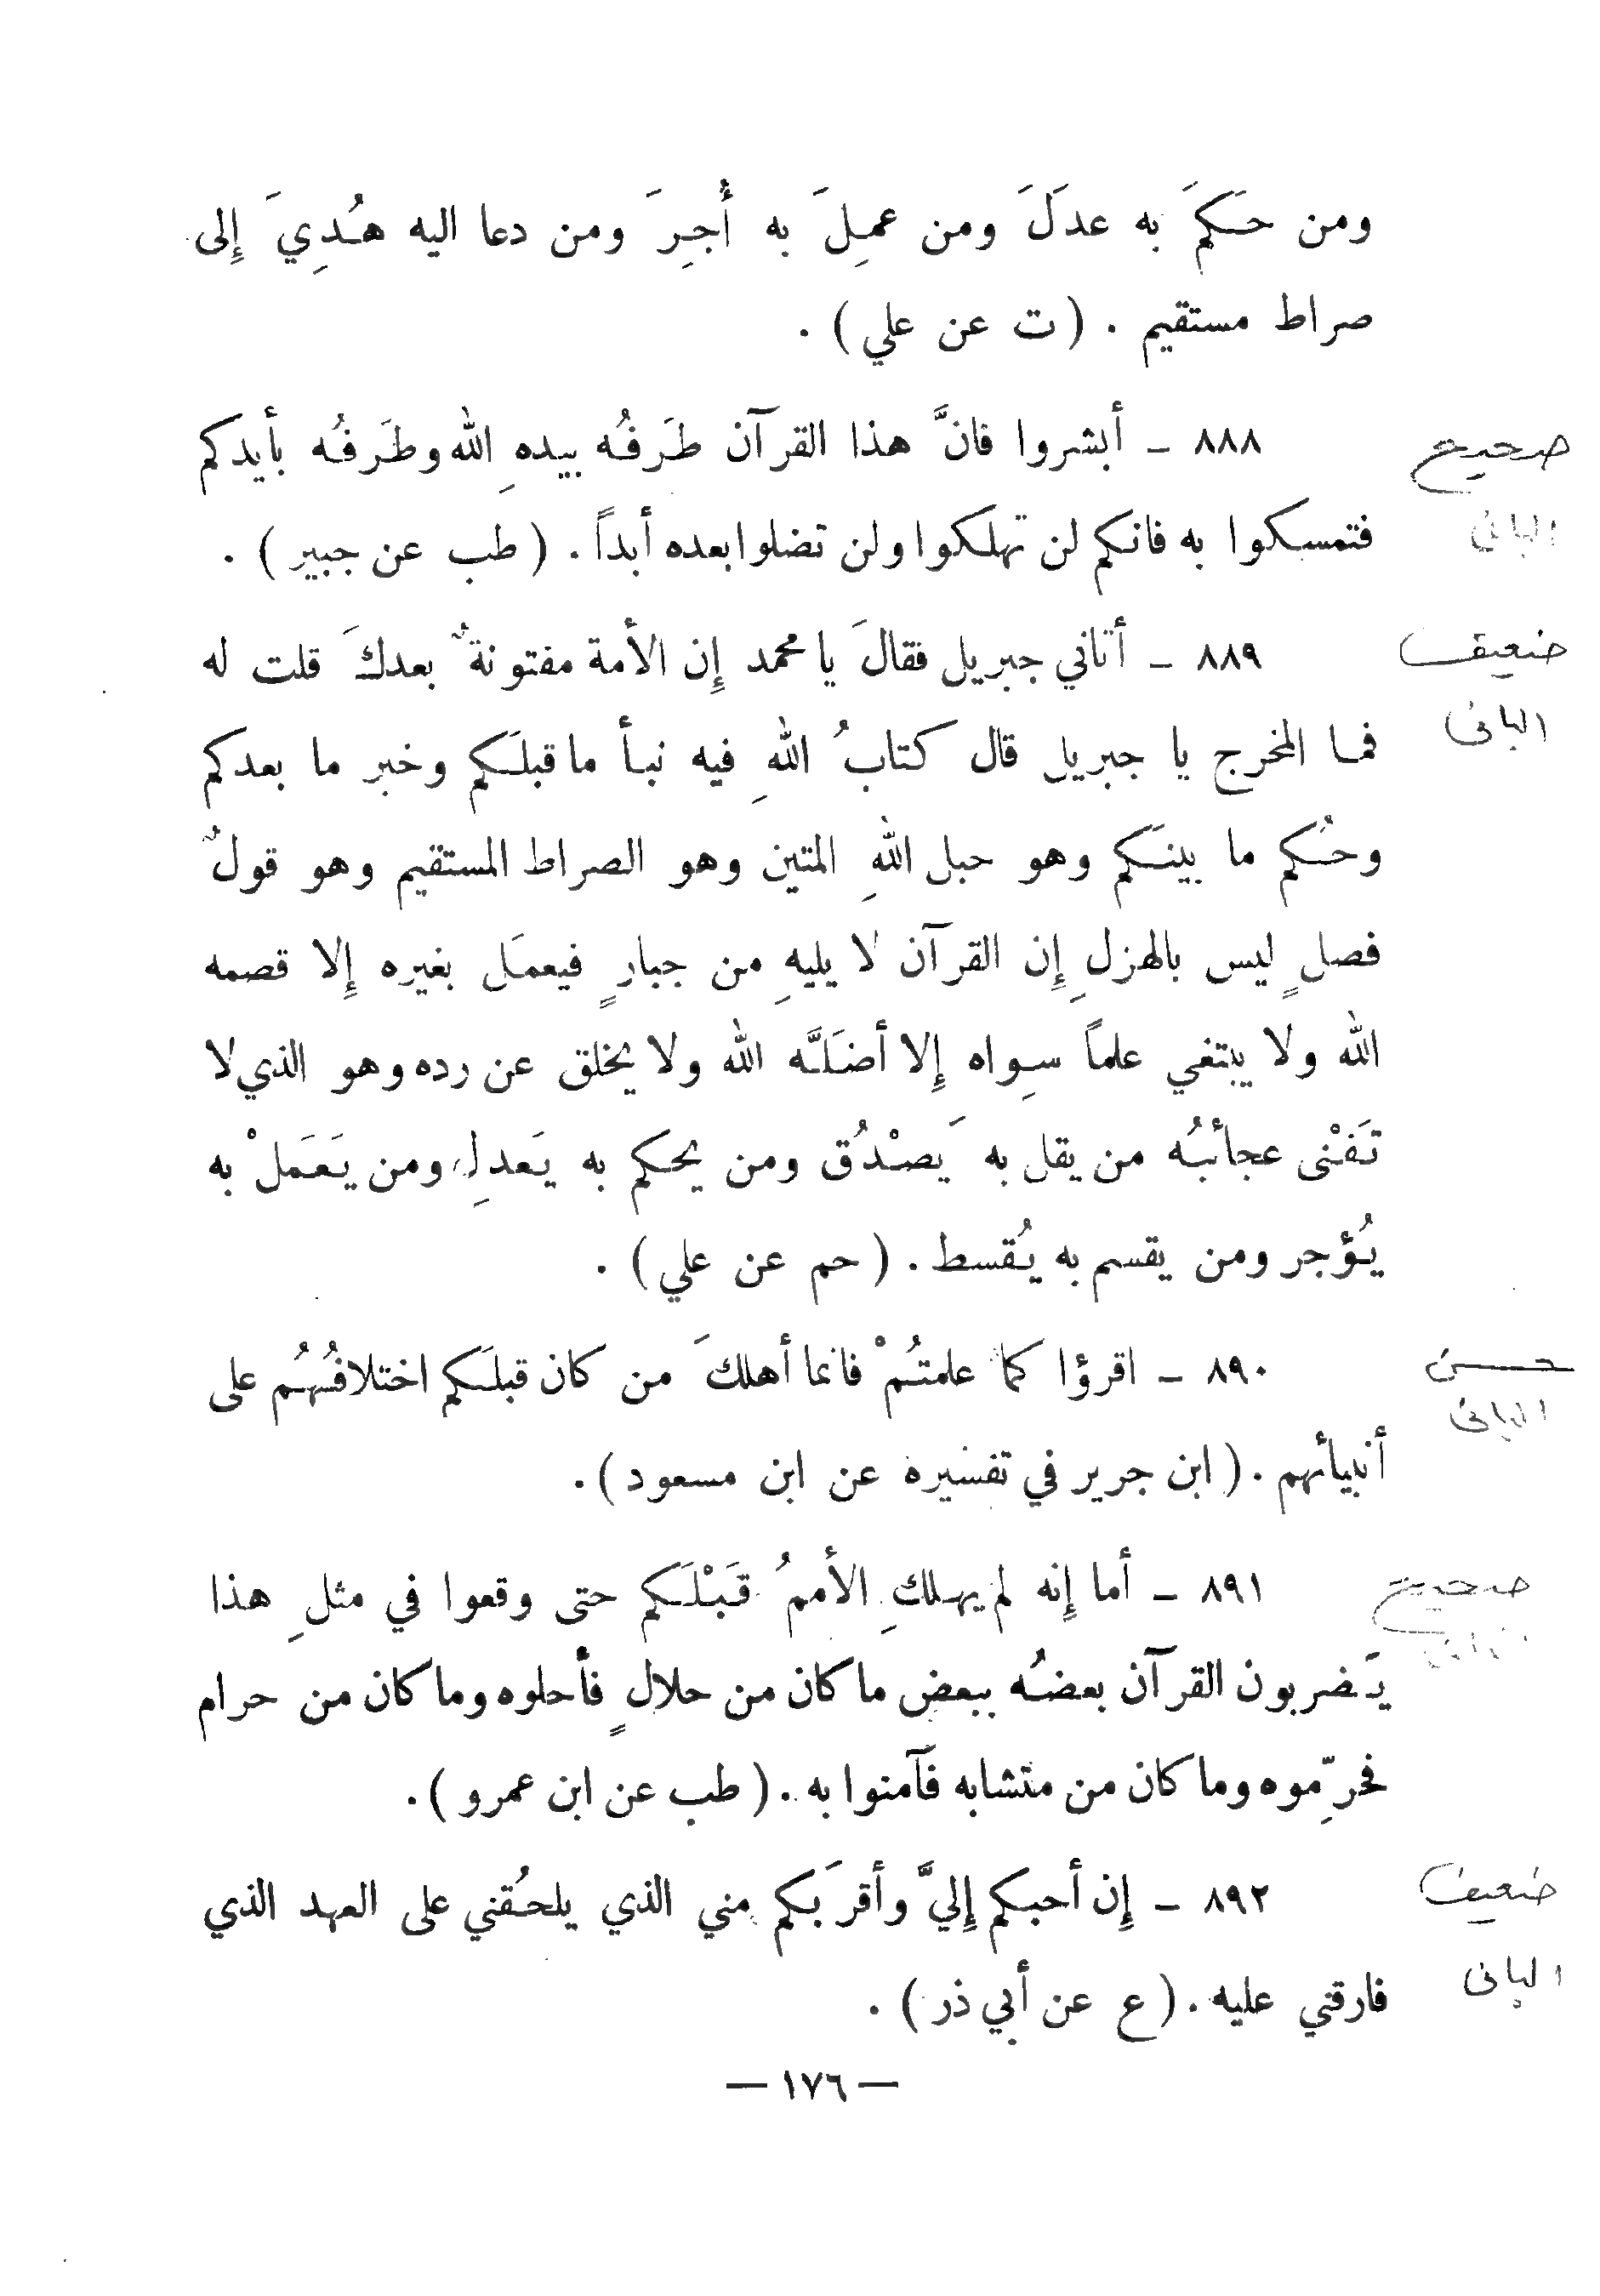 ومن حَكمَ به عدلَ ومن عمِلَ به أُجِرَ ومن دعا اليه هُدِيَ إِلى
صراط مستقيم . ( ت عن علي ) .
٨٨٨ ـ أبشروا فانَّ هذا القرآن طَرفُه بيدهِ الله وطَرفُه بأيدكم
فتمسكوا به فانكم لن تهلكوا ولن تضلوا بعده أبداً . ( طب عن جبير ) .
صحيح
البانى
٨٨٩ ـ أتاني جبريل فقالَ يا محمد إِن الأمة مفتونةٌ بعدكَ قلت له
فما المخرج يا جبريل قال كتابُ اللهِ فيه نبأ ما قبلَكم وخبر ما بعدكم
وحُكم ما بينَكم وهو حبل اللهِ المتين وهو الصراط المستقيم وهو قولٌ
فصلٍ ليس بالهزلِ إِن القرآن لا يليهِ من جبارٍ فيعمَل بغيره إِلا قصمه
الله ولا يبتغي علماً سِواه إِلا أضَلَّه الله ولا يخلق عن رده وهو الذي لا
تَفْنى عجائبُه من يقل به يَصْدُق ومن يحكم به يَعدلِ ومن يَعَملْ به
يُؤجر ومن يقسم به يُقسط . ( حم عن علي ) .
ضعيف
البانى
٨٩٠ ـ اقرؤا كما علمتُمْ فانما أهلكَ من كان قبلَكم اختلافُهُم على
أنبيائهم . ( ابن جرير في تفسيره عن ابن مسعود ) .
حسن
البانى
٨٩١ ـ أما إِنه لم يهلكِ الأممُ قَبْلَكم حتى وقعوا في مثلِ هذا
يَضربون القرآن بعضُه ببعض ما كان من حلالٍ فأحلوه وما كان من حرام
فحرِّموه وما كان من متشابه فآمنوا به . ( طب عن ابن عمرو ) .
صحيح
٨٩٢ ـ إِن أحبكم إِليَّ وأقرَبكم مني الذي يلحُقني على العهد الذي
فارقني عليه . ( ع عن أبي ذر ) .
ضعيف
البانى
— ١٧٦ —